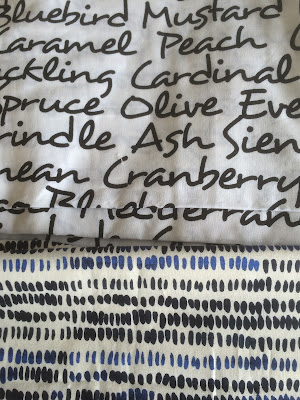 Bluebird Mustard
aramel Peach
ckling Cardinal
pruce Olive Eve
rindle Ash Sien
nean Cranberry